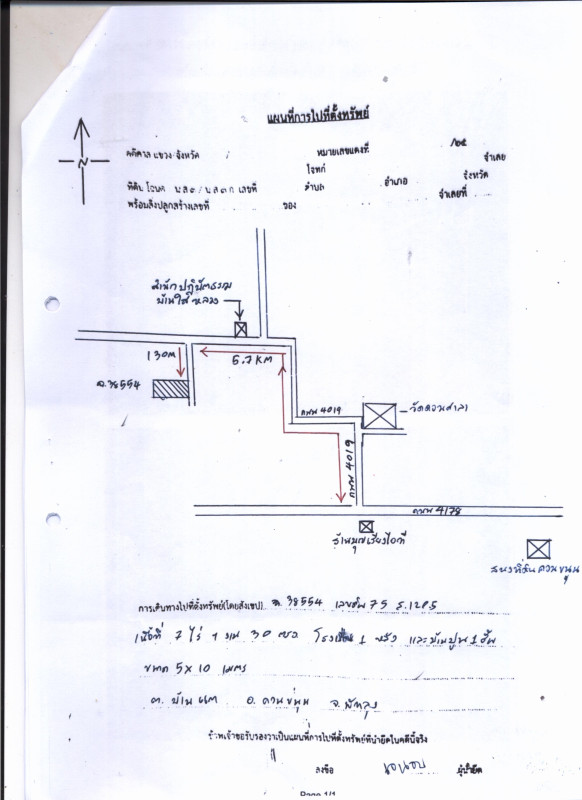 แผนที่การไปที่ตั้งทรัพย์
N
คดีศาล แขวง/จังหวัด หมายเลขแดงที่ /๒๕
โจทก์ จำเลย
ที่ดิน โฉนด น.ส.๓ / น.ส.๓ ก. เลขที่ ตำบล อำเภอ จังหวัด
พร้อมสิ่งปลูกสร้างเลขที่ ของ จำเลยที่
สำนักปฏิบัติธรรม
บ้านใสหลวง
130M
5.7 KM
ฉ.38554
ถพพ 4019
วัดควนศาลา
ถพพ 4019
ถพพ 4178
สทงที่ดินควนขนุน
การเดินทางไปที่ตั้งทรัพย์(โดยสังเขป) ฉ. 38554 เลขที่ดิน 75 ร.1205
เนื้อที่ 7 ไร่ 1 งาน 30 ตรว. 1 หลัง และ
ขนาด 5 x 10 เมตร
ต. อ. ควนขนุน จ. พัทลุง
ข้าพเจ้าขอรับรองว่าเป็นแผนที่การไปที่ตั้งทรัพย์ที่นำยึดในคดีนี้จริง
ลงชื่อ ผู้นำยึด
Page 1/1